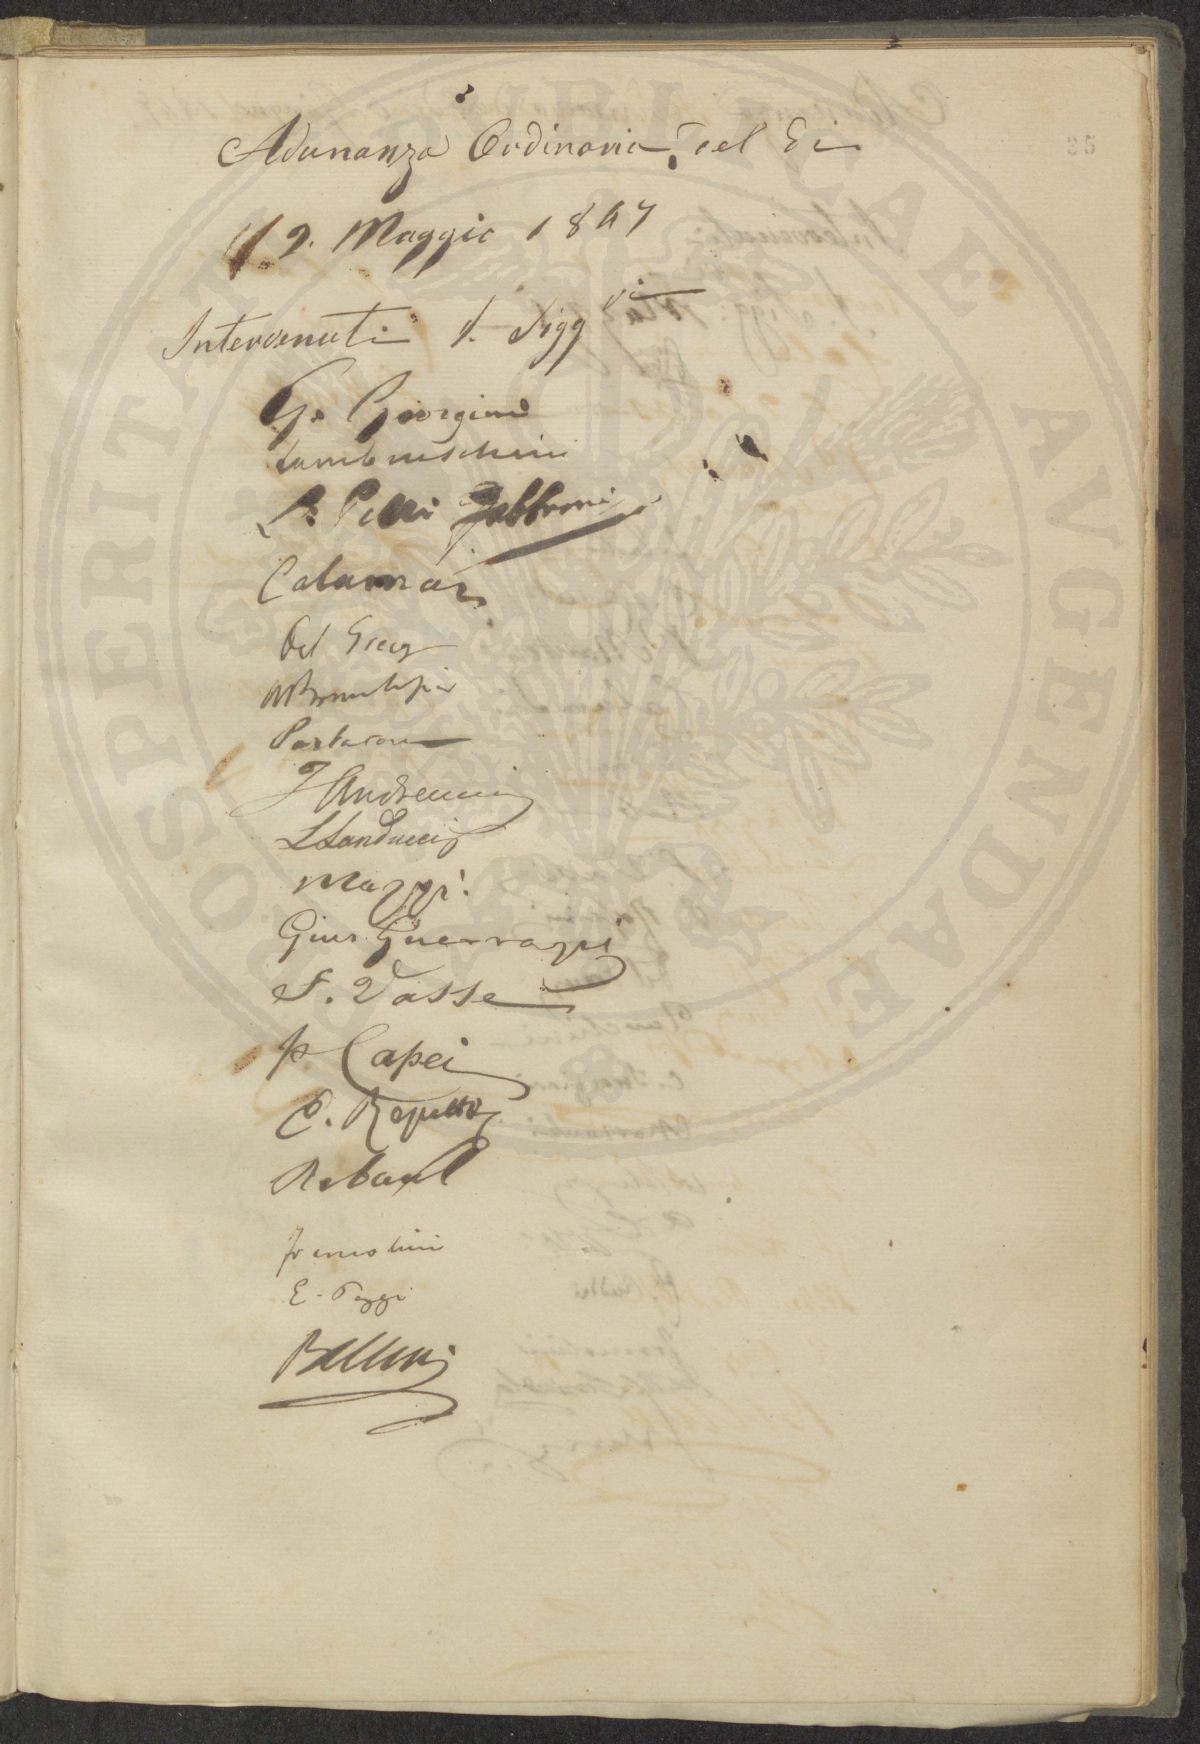 Adunanza Ordinaria del di
12. Maggio 1847
Intervenuti i Sigg.ri
G. Giorgini
Lambruschini
L. Pelli Fabbroni
Calamai
Del Greco
Partacon
F Andreucci
L Landucci
Mazzi.
Gius Guerrazzi
F. Vasse
P Capei
E. Repetti
Reboul
Franceschini
E. Poggi
Bellini
35
PROSPERITATI PUBLICAE AVGENDAE